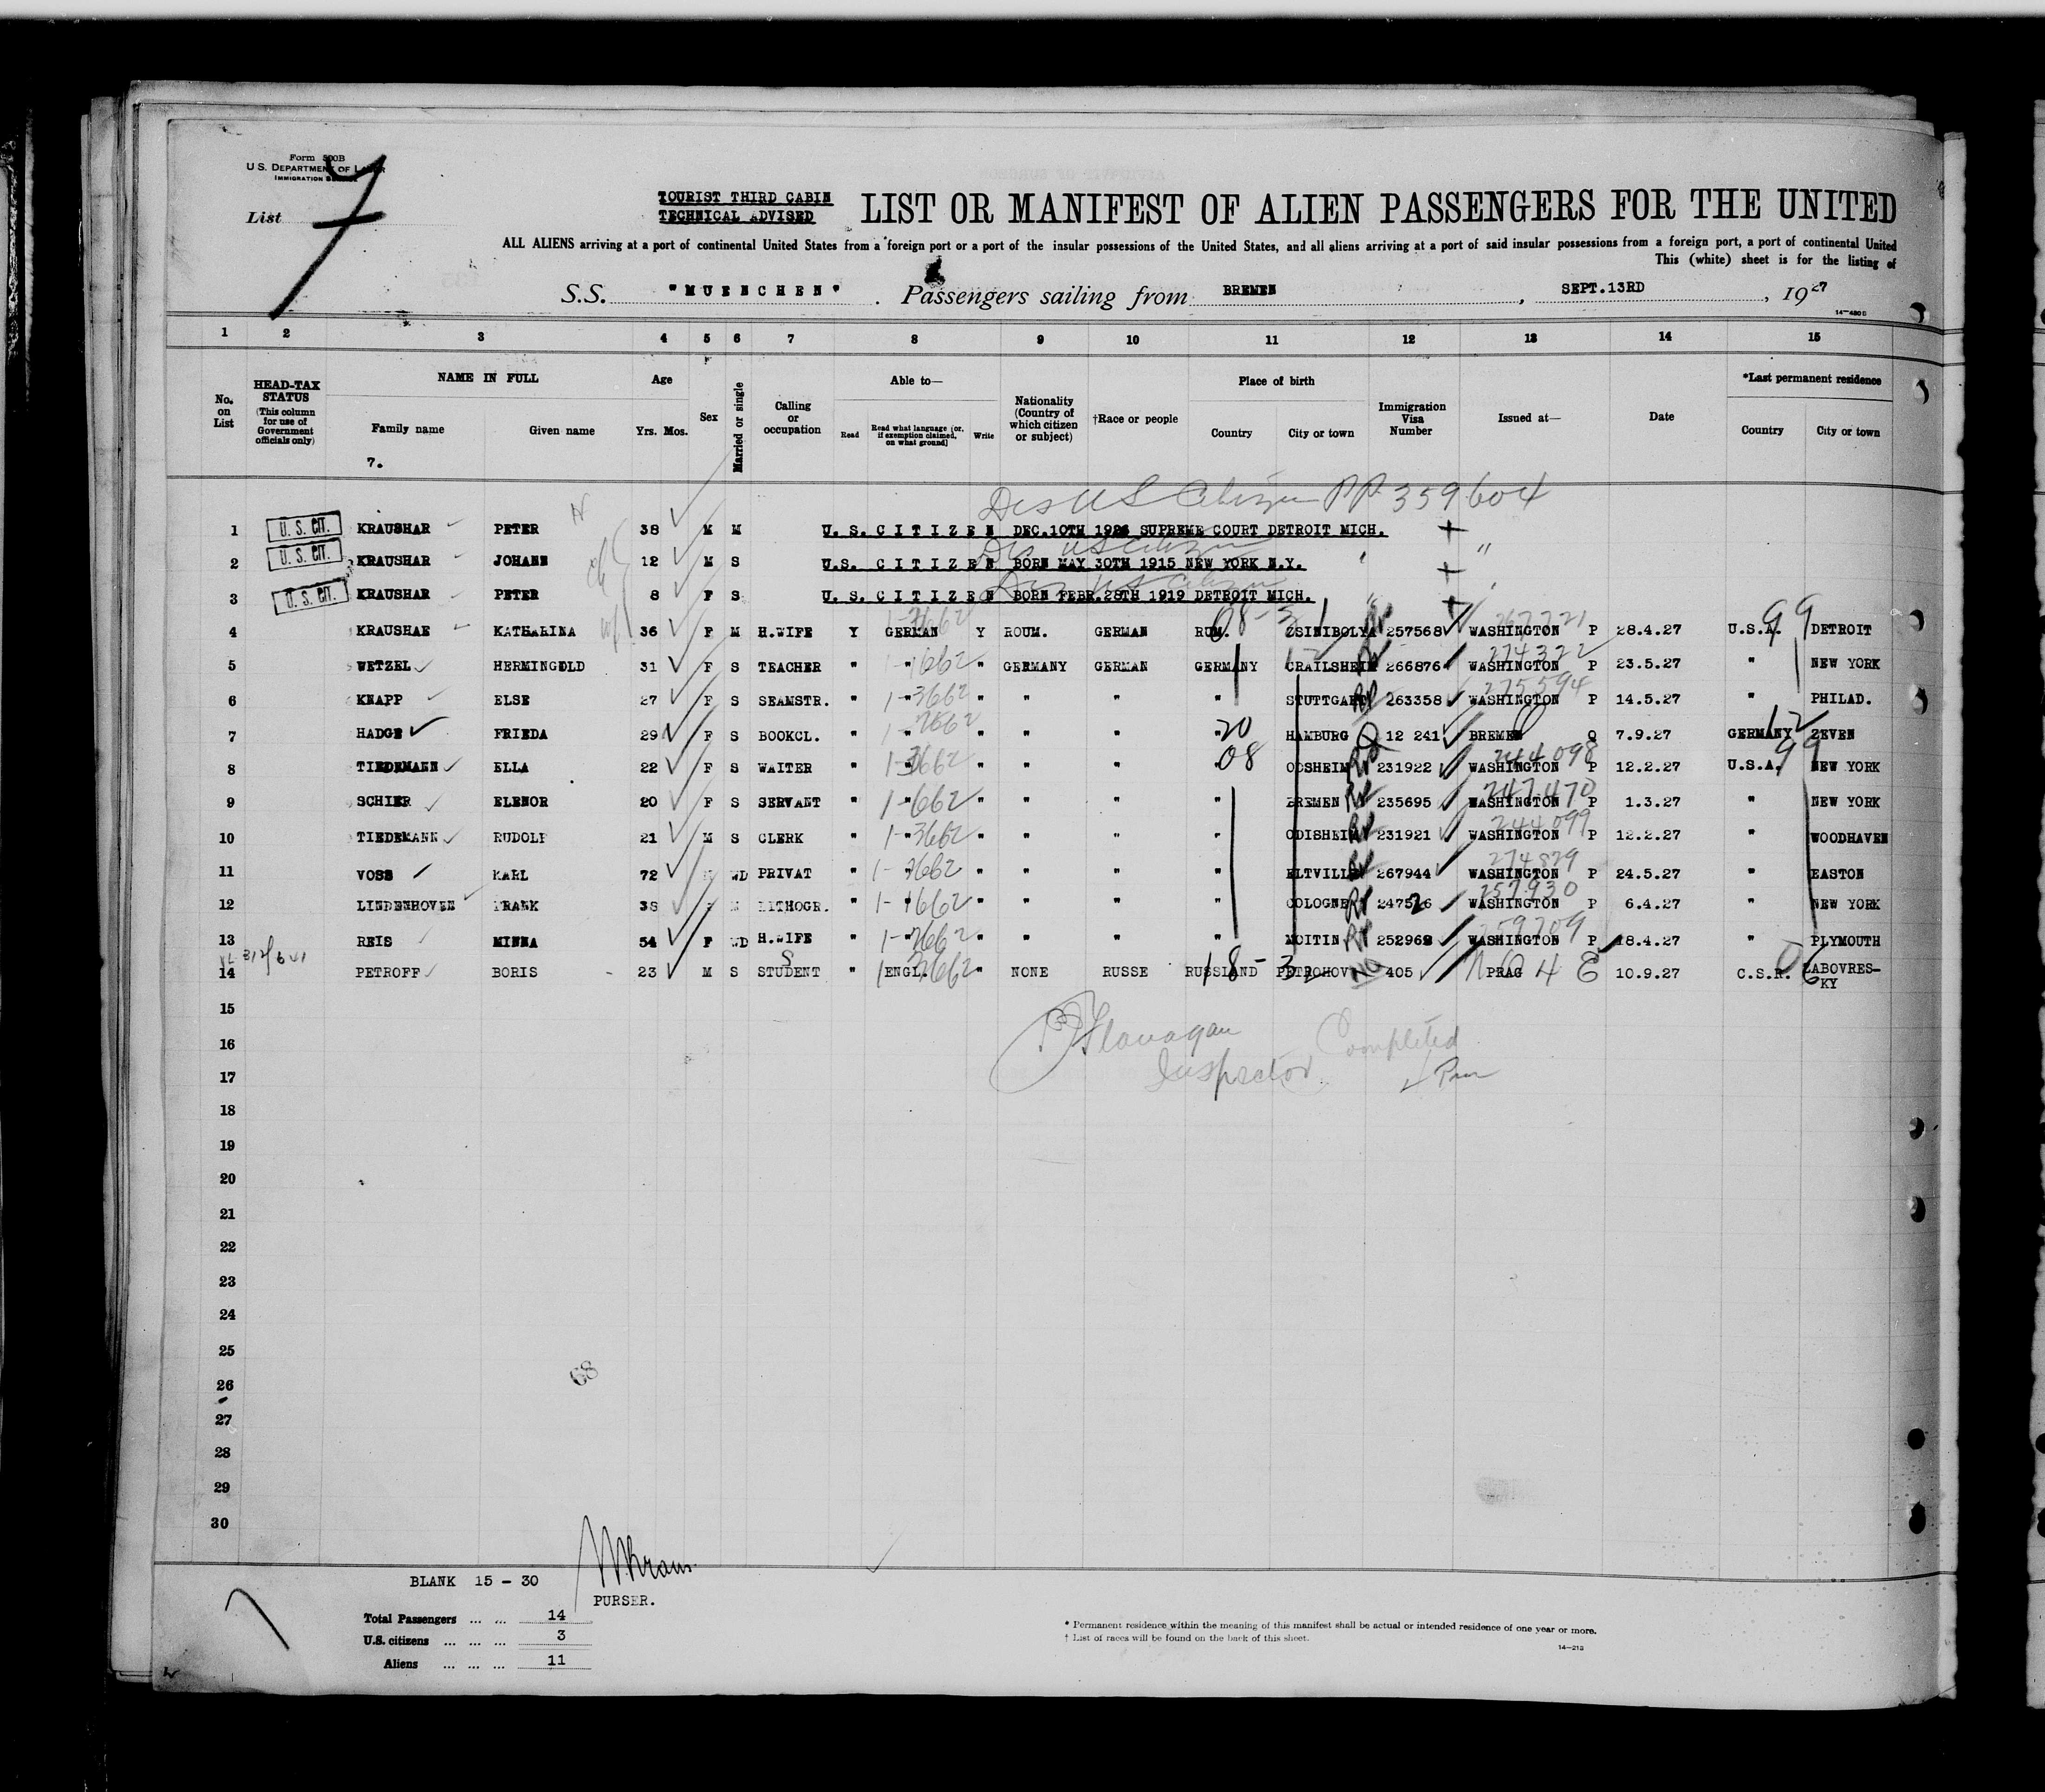 Form 500B
U.S. DEPARTMENT OF LABOR
IMMIGRATION SERVICE
List 7
TOURIST THIRD CABIN
TECHNICAL ADVISED
LIST OR MANIFEST OF ALIEN PASSENGERS FOR THE UNITED
ALL ALIENS arriving at a port of continental United States from a foreign port or a port of the insular possessions of the United States, and all aliens arriving at a port of said insular possessions from a foreign port, a port of continental United
This (white) sheet is for the listing of
S.S. "MUENCHEN" . Passengers sailing from BREMEN , SEPT.13RD , 1927
14—480B
1 2 3 4 5 6 7 8 9 10 11 12 13 14 15
No. on List
HEAD-TAX STATUS (This column for use of Government officials only)
NAME IN FULL
Family name Given name
7.
Age
Yrs. Mos.
Sex
Married or single
Calling or occupation
Able to—
Read
Read what language [or, if exemption claimed, on what ground]
Write
Nationality (Country of which citizen or subject)
†Race or people
Place of birth
Country City or town
Immigration Visa Number
Issued at—
Date
*Last permanent residence
Country City or town
Des US Citizen PP 359604
1 U.S. CIT. KRAUSHAR PETER 38 M M U.S. CITIZEN DEC.10TH 1926 SUPREME COURT DETROIT MICH.
Des US Citizen "
2 U.S. CIT. KRAUSHAR JOHANN 12 M S U.S. CITIZEN BORN MAY 30TH 1915 NEW YORK N.Y.
Des US Citizen
3 U.S. CIT. KRAUSHAR PETER 8 F S U.S. CITIZEN BORN FEBR.28TH 1919 DETROIT MICH.
4 KRAUSHAR KATHARINA 36 F M H.WIFE Y GERMAN Y ROUM. GERMAN RUM. ZSINIBOLYA 257568 WASHINGTON P 28.4.27 U.S.A. 99 DETROIT
5 WETZEL HERMINGOLD 31 F S TEACHER " " " GERMANY GERMAN GERMANY CRAILSHEIM 266876 274322 WASHINGTON P 23.5.27 " NEW YORK
6 KNAPP ELSE 27 F S SEAMSTR. " " 1-3662 " " " " STUTTGART 263358 275594 WASHINGTON P 14.5.27 " PHILAD.
7 HADGE FRIEDA 29 F S BOOKCL. " " " " " " 20 HAMBURG Q 12 241 BREMEN Q 7.9.27 GERMANY 12 ZEVEN
8 TIEDEMANN ELLA 22 F S WAITER " " 1-3662 " " " " 08 ODSHEIM 231922 244098 WASHINGTON P 12.2.27 U.S.A. 99 NEW YORK
9 SCHIER ELENOR 20 F S SERVANT " " 1-662 " " " " BREMEN 235695 247470 WASHINGTON P 1.3.27 " NEW YORK
10 TIEDEMANN RUDOLF 21 M S CLERK " " 1-3662 " " " " ODISHEIM 231921 244099 WASHINGTON P 12.2.27 " WOODHAVEN
11 VOSS KARL 72 WD PRIVAT " " " " " " ELTVILLE 267944 274829 WASHINGTON P 24.5.27 " EASTON
12 LINDENHOVEN FRANK 38 M LITHOGR. " " " " " " COLOGNE 247526 257930 WASHINGTON P 6.4.27 " NEW YORK
13 REIS MINNA 54 F WD H.WIFE " " " " " " MOITIN 252969 259709 WASHINGTON P 18.4.27 " PLYMOUTH
14 PETROFF BORIS - 23 M S STUDENT " ENGL. " NONE RUSSE RUSSLAND PETROHOV 405 PRAG 10.9.27 C.S.R. 06 ZABOVRES-
KY
15
16
17
P Flanagan
Inspector
Completed
18
19
20
21
22
23
24
25
26
68
27
28
29
30
BLANK 15 - 30
PURSER.
Total Passengers ... ... 14
U.S. citizens ... ... ... 3
Aliens ... ... ... 11
* Permanent residence within the meaning of this manifest shall be actual or intended residence of one year or more.
† List of races will be found on the back of this sheet.
14—213